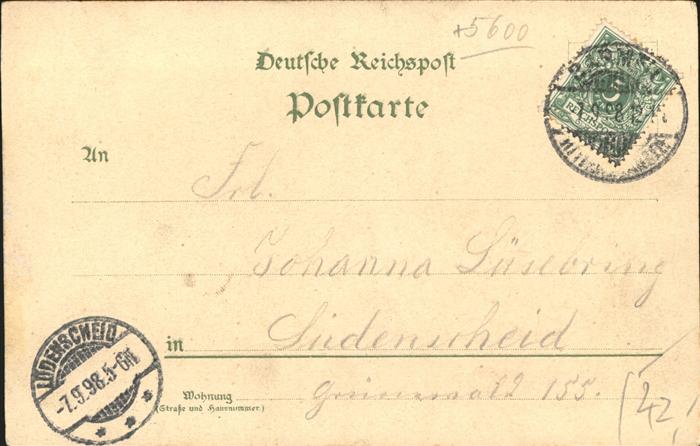 +5600
Deutsche Reichspost
Postkarte
An
Frl.
Johanna Lüsebring
in Lüdenscheid
Wohnung
(Straße und Hausnummer)
Grünewald 155.
LÜDENSCHEID
-7.9.98.5-6N.
5
REICHSPOST
42